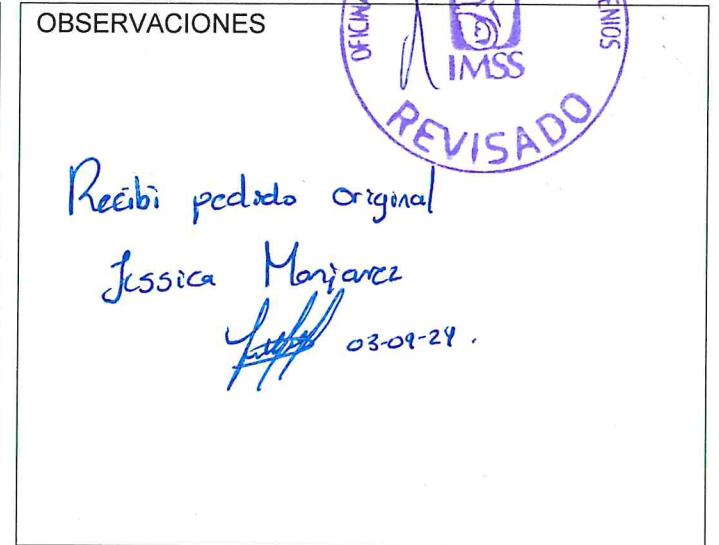 OBSERVACIONES
OFICINA
IMSS
REVISADO
Recibi pedido original
Jessica Manjarez
03-09-24.